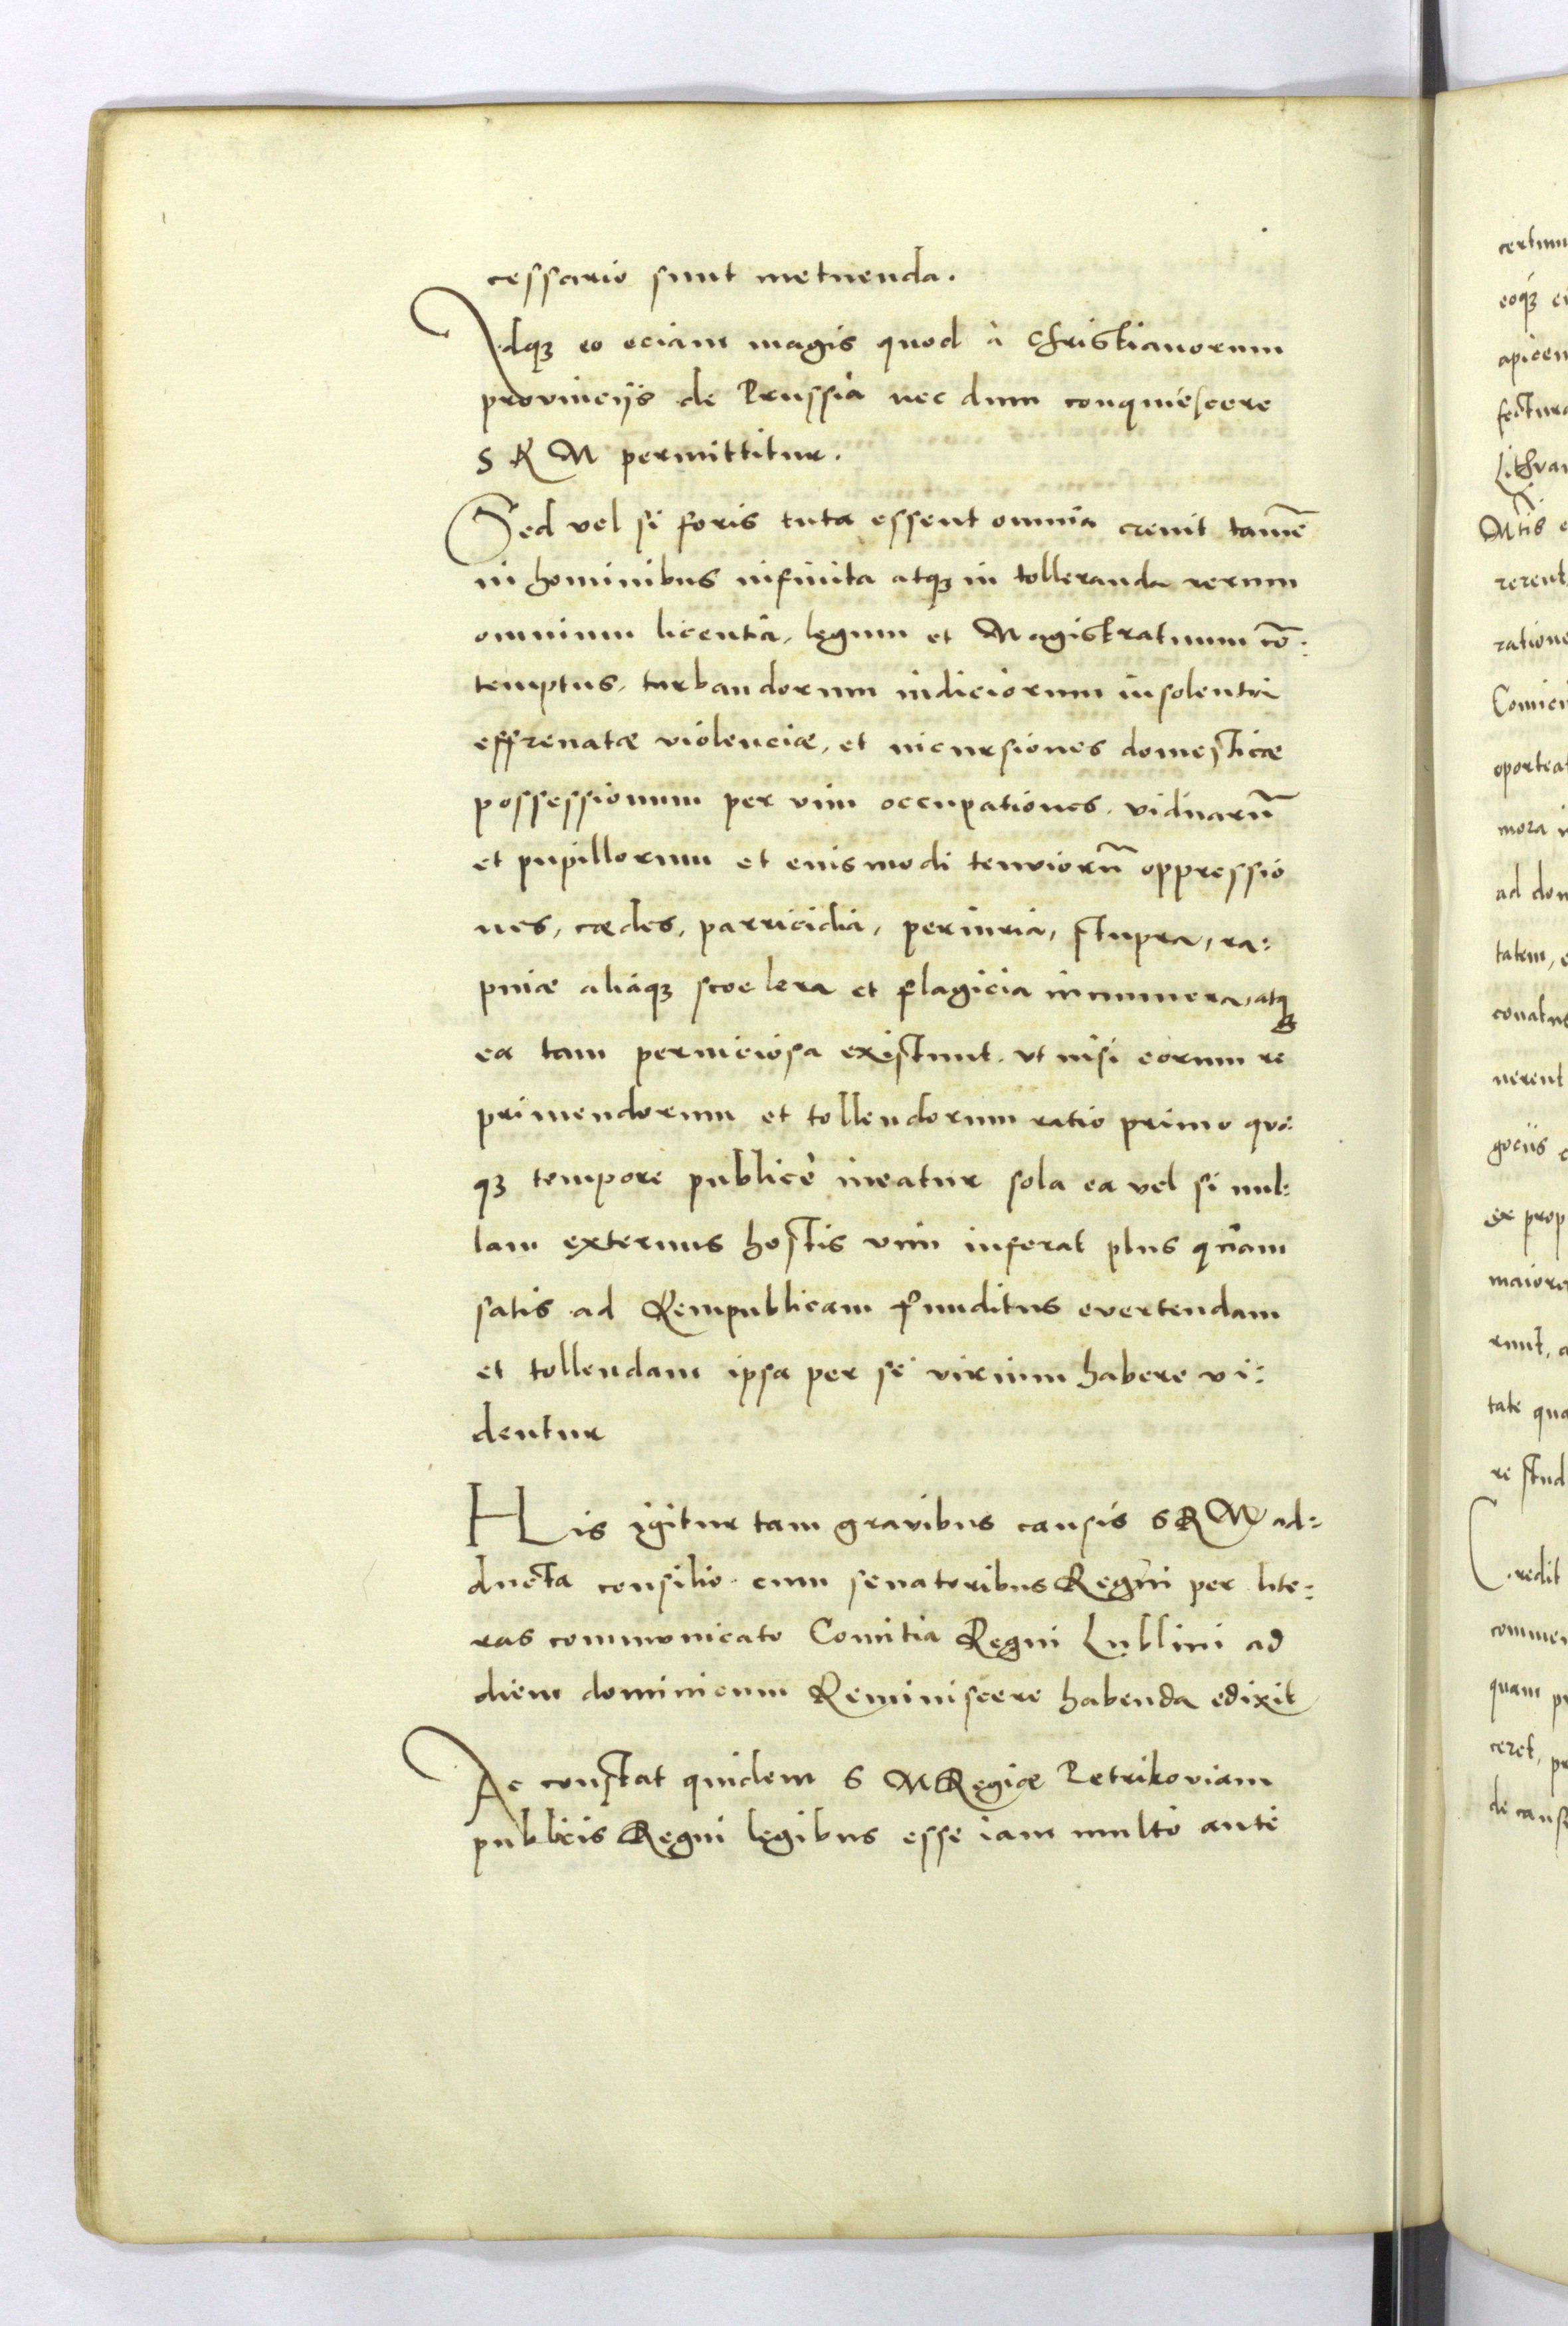 cessario sunt metuenda.
Idqꝫ eo eciam magis quod à Christianorum
provincijs de Prussia nec dum conquiescere
S R M permittitur.
Sed vel si foris tuta essent omnia crevit tamē
in hominibus infinita atqꝫ in tolleranda rerum
omnium licentia, legum et Magistratuum cō:
temptus, turbandorum iudiciorum insolentia
effrenatæ violenciæ, et incursiones domesticæ
possessionum per vim occupationes. viduarū
et pupillorum et euismodi tenviorū oppressio
nes, cædes, parricidia, periuria, stupra, ra:
pinæ aliáqꝫ scoelera et flagicia innumera, atqꝫ
ea tam perniciosa existunt. vt nisi eorum re
primendorum et tollendorum ratio primo quo
qꝫ tempore publicè ineatur sola ea vel si nul:
lam externus hostis vim inferat plus quam
satis ad Rempublicam funditus evertendam
et tollendam ipsa per se virium habere vi:
dentur
His igitur tam gravibus causis S R M ad:
ducta consilio cum senatoribus Regni per lite:
ras communicato Comitia Regni Lublini ad
diem dominicum Reminiscere habenda edixit
Ac constat quidem S M Regiæ Petrikoviam
publicis Regni legibus esse iam multo ante
eoqꝫ
apicem
Mtis
ratione
mora
tatem,
gociis
ex prop
tate
re stud
Credit
quam
ceret,